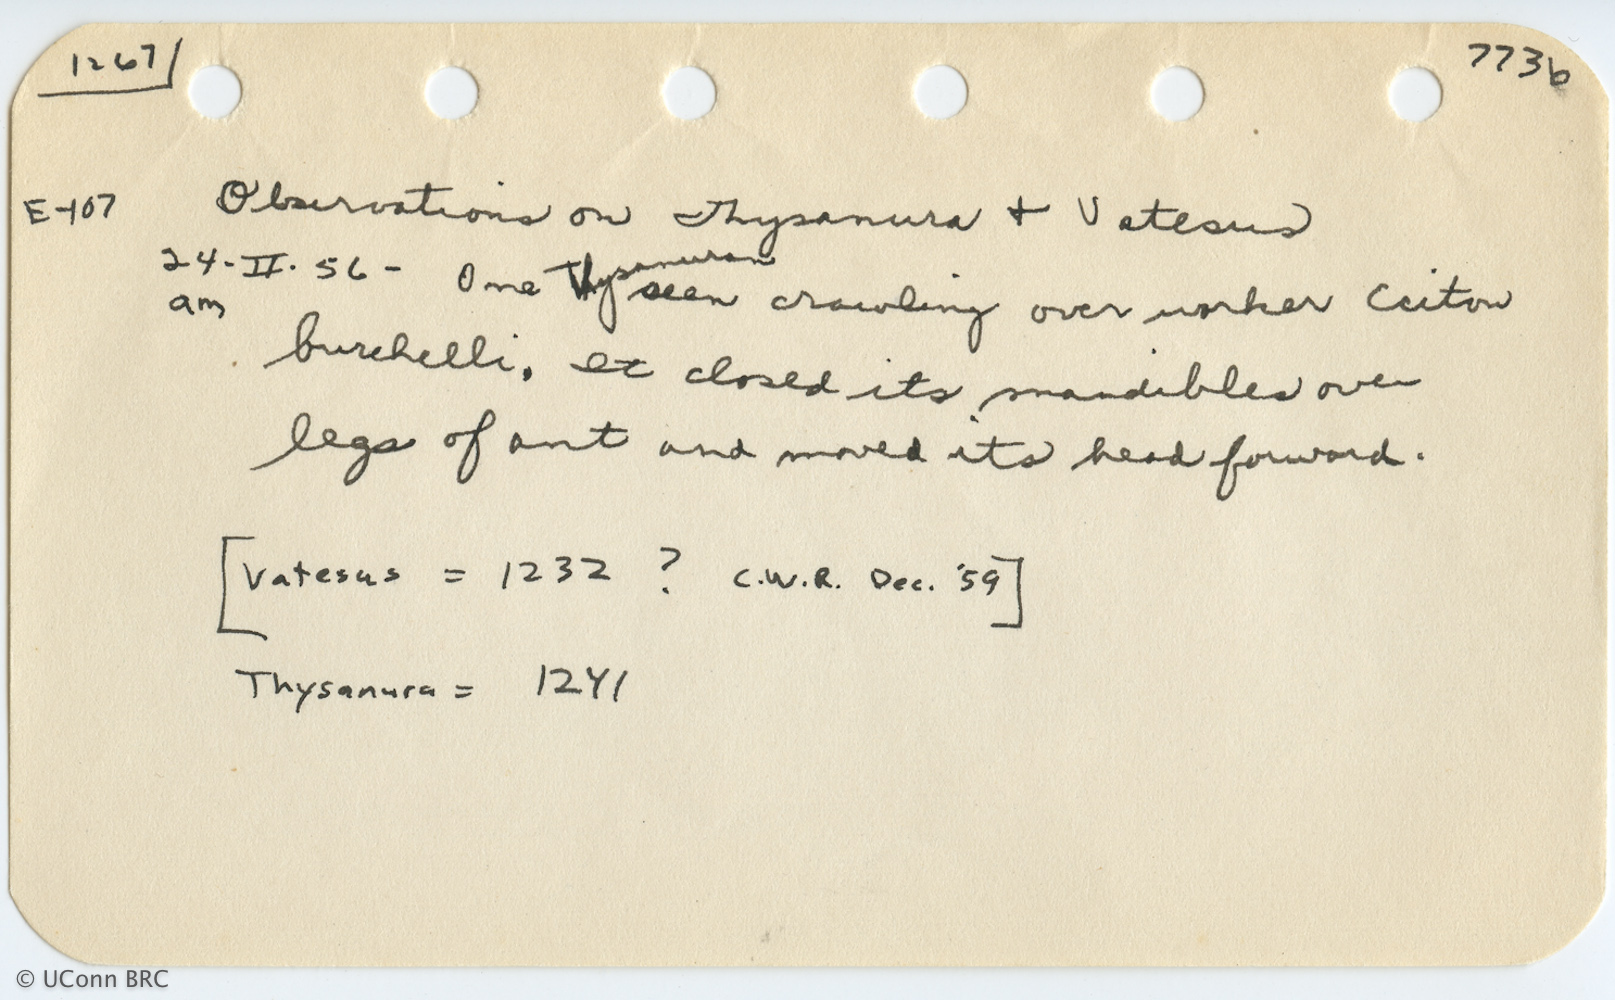 1267
7736
E-107 Observations on Thysanura + Vatesus
24-II-56- One Thysanuran seen crawling over worker Eciton
am
burchelli. It closed its mandibles over
legs of ant and moved its head forward.
[Vatesus = 1232 ? C.W.R. Dec. '59]
Thysanura = 1241
© UConn BRC